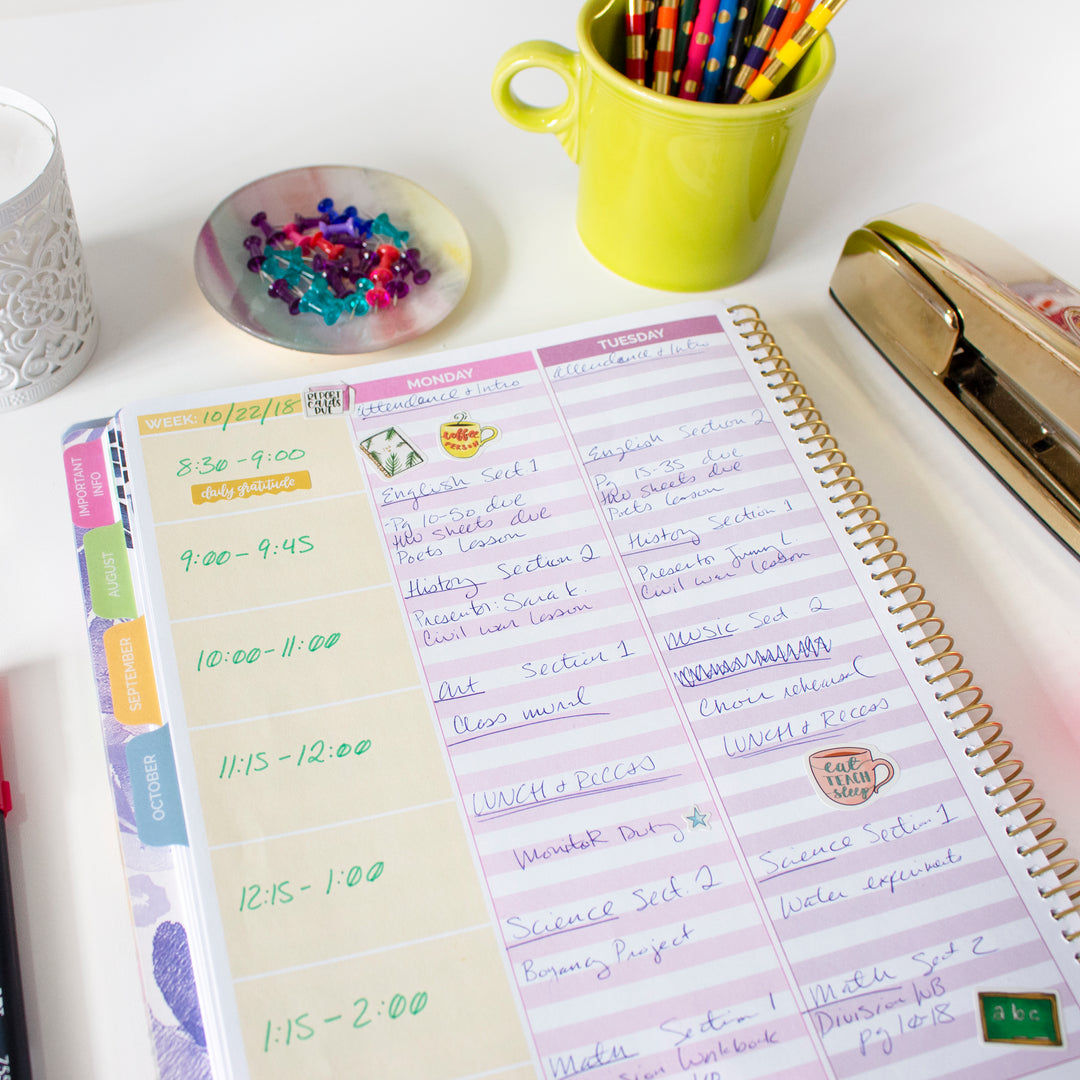 WEEK: 10/22/18
REPORT
CARDS
DUE
8:30-9:00
daily gratitude
9:00-9:45
10:00-11:00
11:15-12:00
12:15-1:00
1:15-2:00
IMPORTANT
INFO
AUGUST
SEPTEMBER
OCTOBER
MONDAY
Attendance + Intro
coffee
PERSON
English Sect 1
Pg 10-50 due
two sheets due
Poets Lesson
History Section 2
Presentor: Sara K.
Civil war lesson
Art Section 1
Class mural
LUNCH + RECESS
Monitor Duty
Science Sect. 2
Boyancy Project
Math Section 1
Division Workbook
TUESDAY
Attendance + Intro
English Section 2
Pg 15-35 due
two sheets due
Poets Lesson
History Section 1
Presentor Jimmy L
Civil war lesson
MUSIC Sect 2
Choir rehearsal
LUNCH + RECESS
eat
TEACH
sleep
Science Section 1
Water experiment
Math Sect 2
Division WB
pg 10-18
a b c